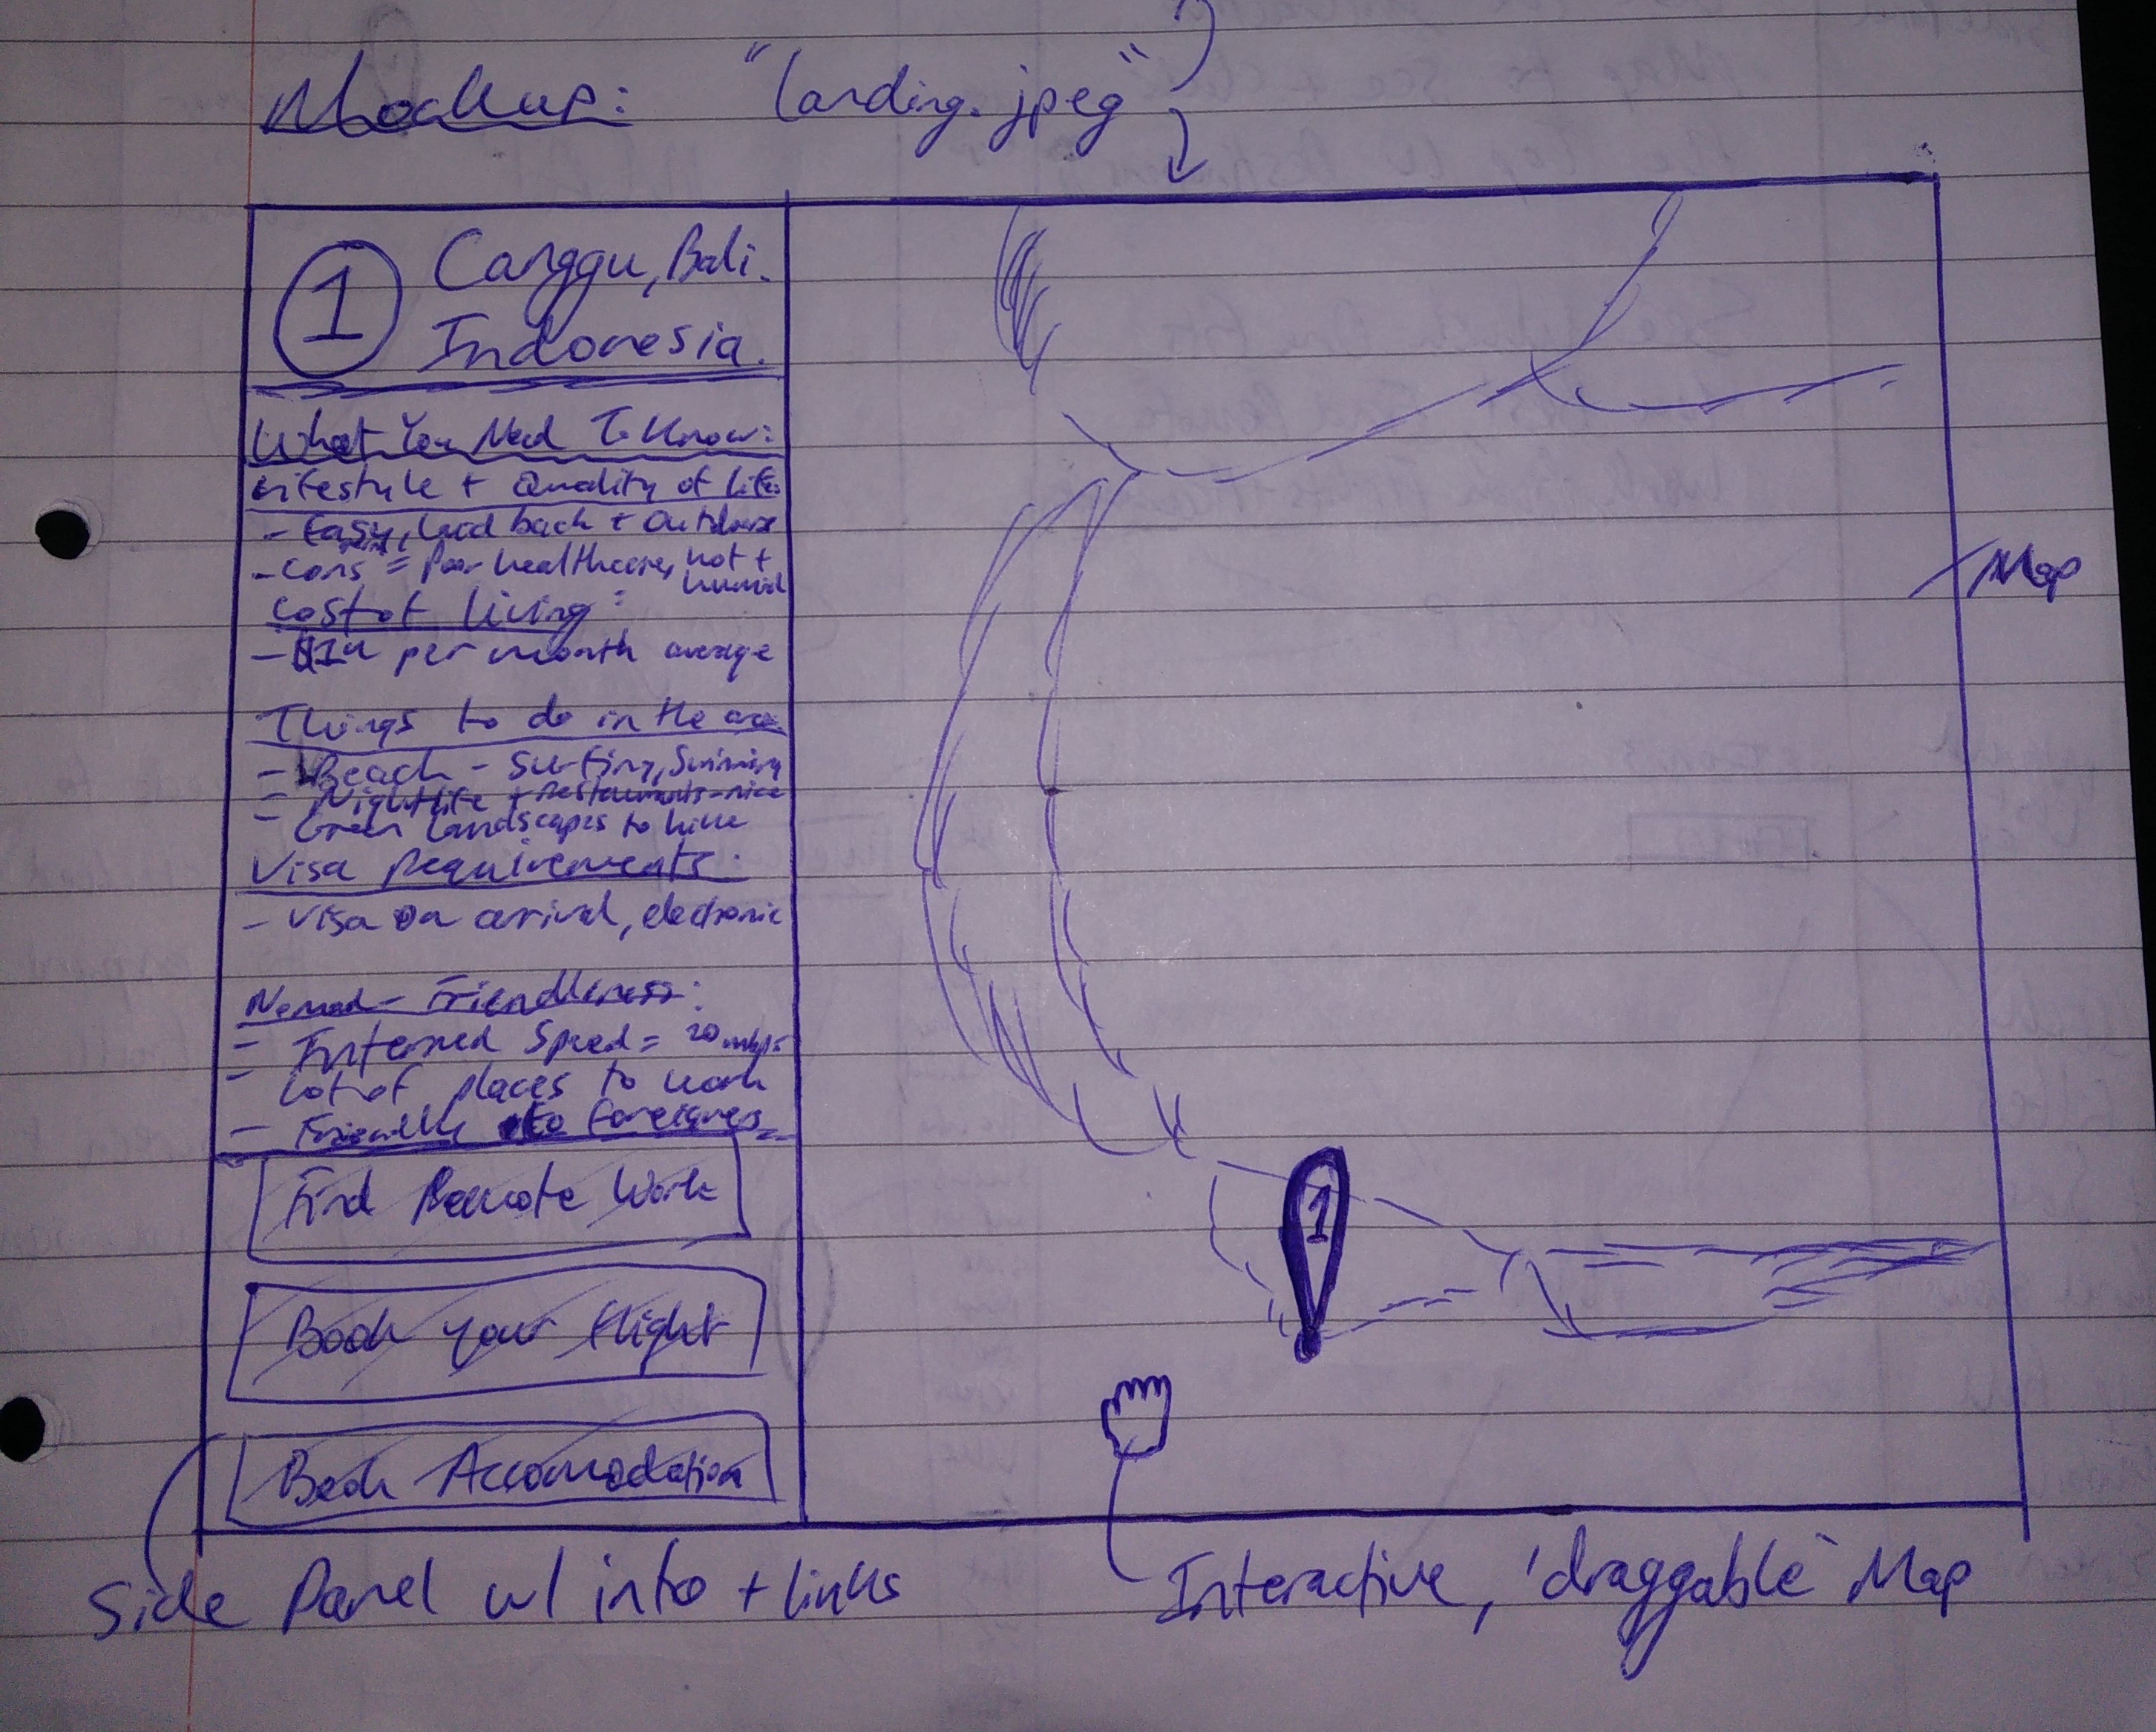 Mockup: "landing.jpeg"
1
Canggu, Bali.
Indonesia.
What You Need To Know:
Lifestyle + Quality of Life:
- Easy, laid back + Outdoors
- Cons = Poor healthcare, hot +
humid
Cost of living:
- $1k per month average
Things to do in the area
- Beach - Surfing, Swimming
- Nightlife + Restaurants - nice
- Green Landscapes to hike
Visa Requirements:
- Visa on arrival, electronic
Nomad-Friendliness:
- Internet Speed = 20 mbps
- Lot of places to work
- Friendly to foreigners
Find Remote Work
Book your flight
Book Accomodation
1
Map
Side Panel w/ info + links
Interactive, 'draggable' Map